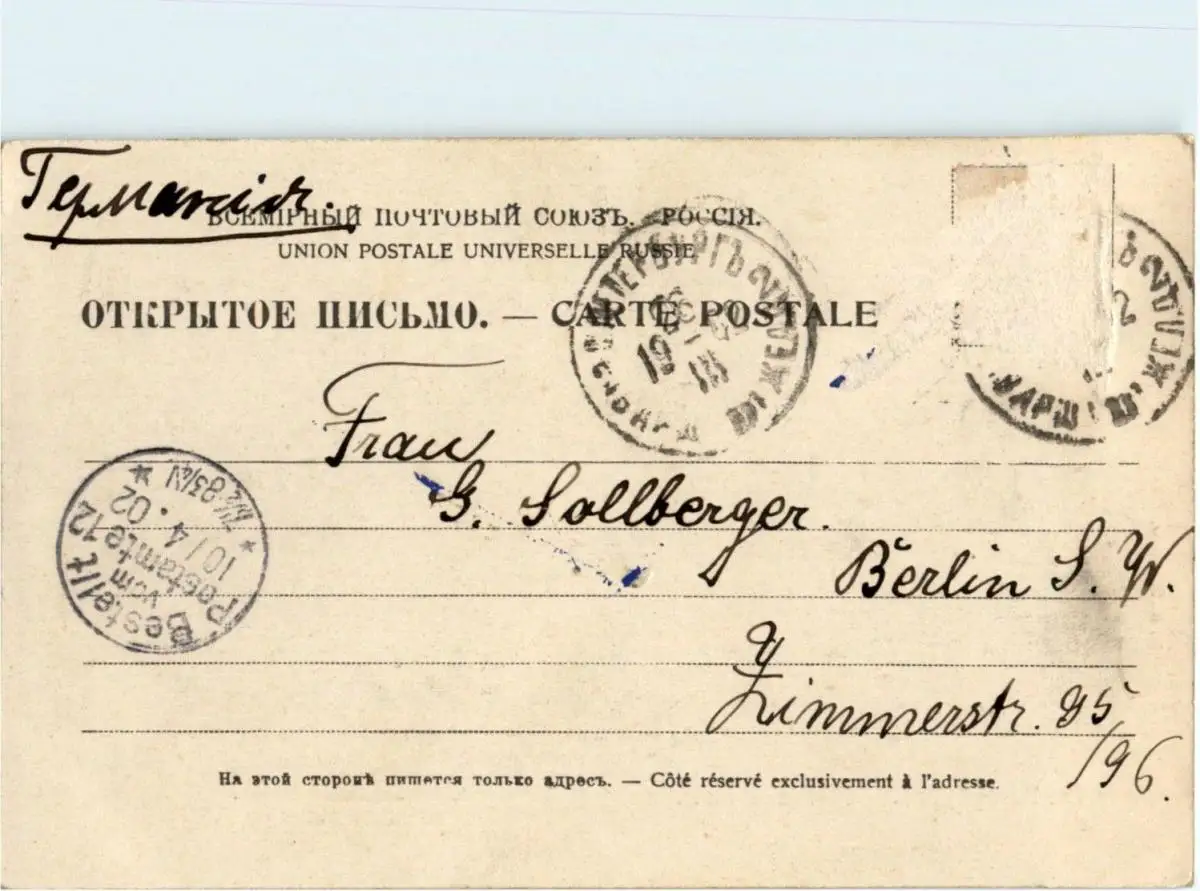 Германія.
ВСЕМІРНЫЙ ПОЧТОВЫЙ СОЮЗЪ. РОССІЯ.
UNION POSTALE UNIVERSELLE RUSSIE.
ОТКРЫТОЕ ПИСЬМО. — CARTE POSTALE
Frau
G. Sollberger.
Berlin S. W.
Zimmerstr. 95
/96.
Bestellt
vom
Postamte 12
10/4.02
На этой сторонѣ пишется только адресъ. — Côté réservé exclusivement à l'adresse.